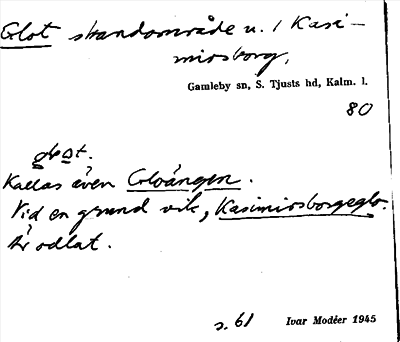 Glot strandområde u. / Kasi-
mirsborg,
Gamleby sn, S. Tjusts hd, Kalm. l.
80
glot.
Kallas även Gloängen.
Vid en grund vik, Kasimirsborgeglo.
Är odlat.
s. 61 Ivar Modéer 1945